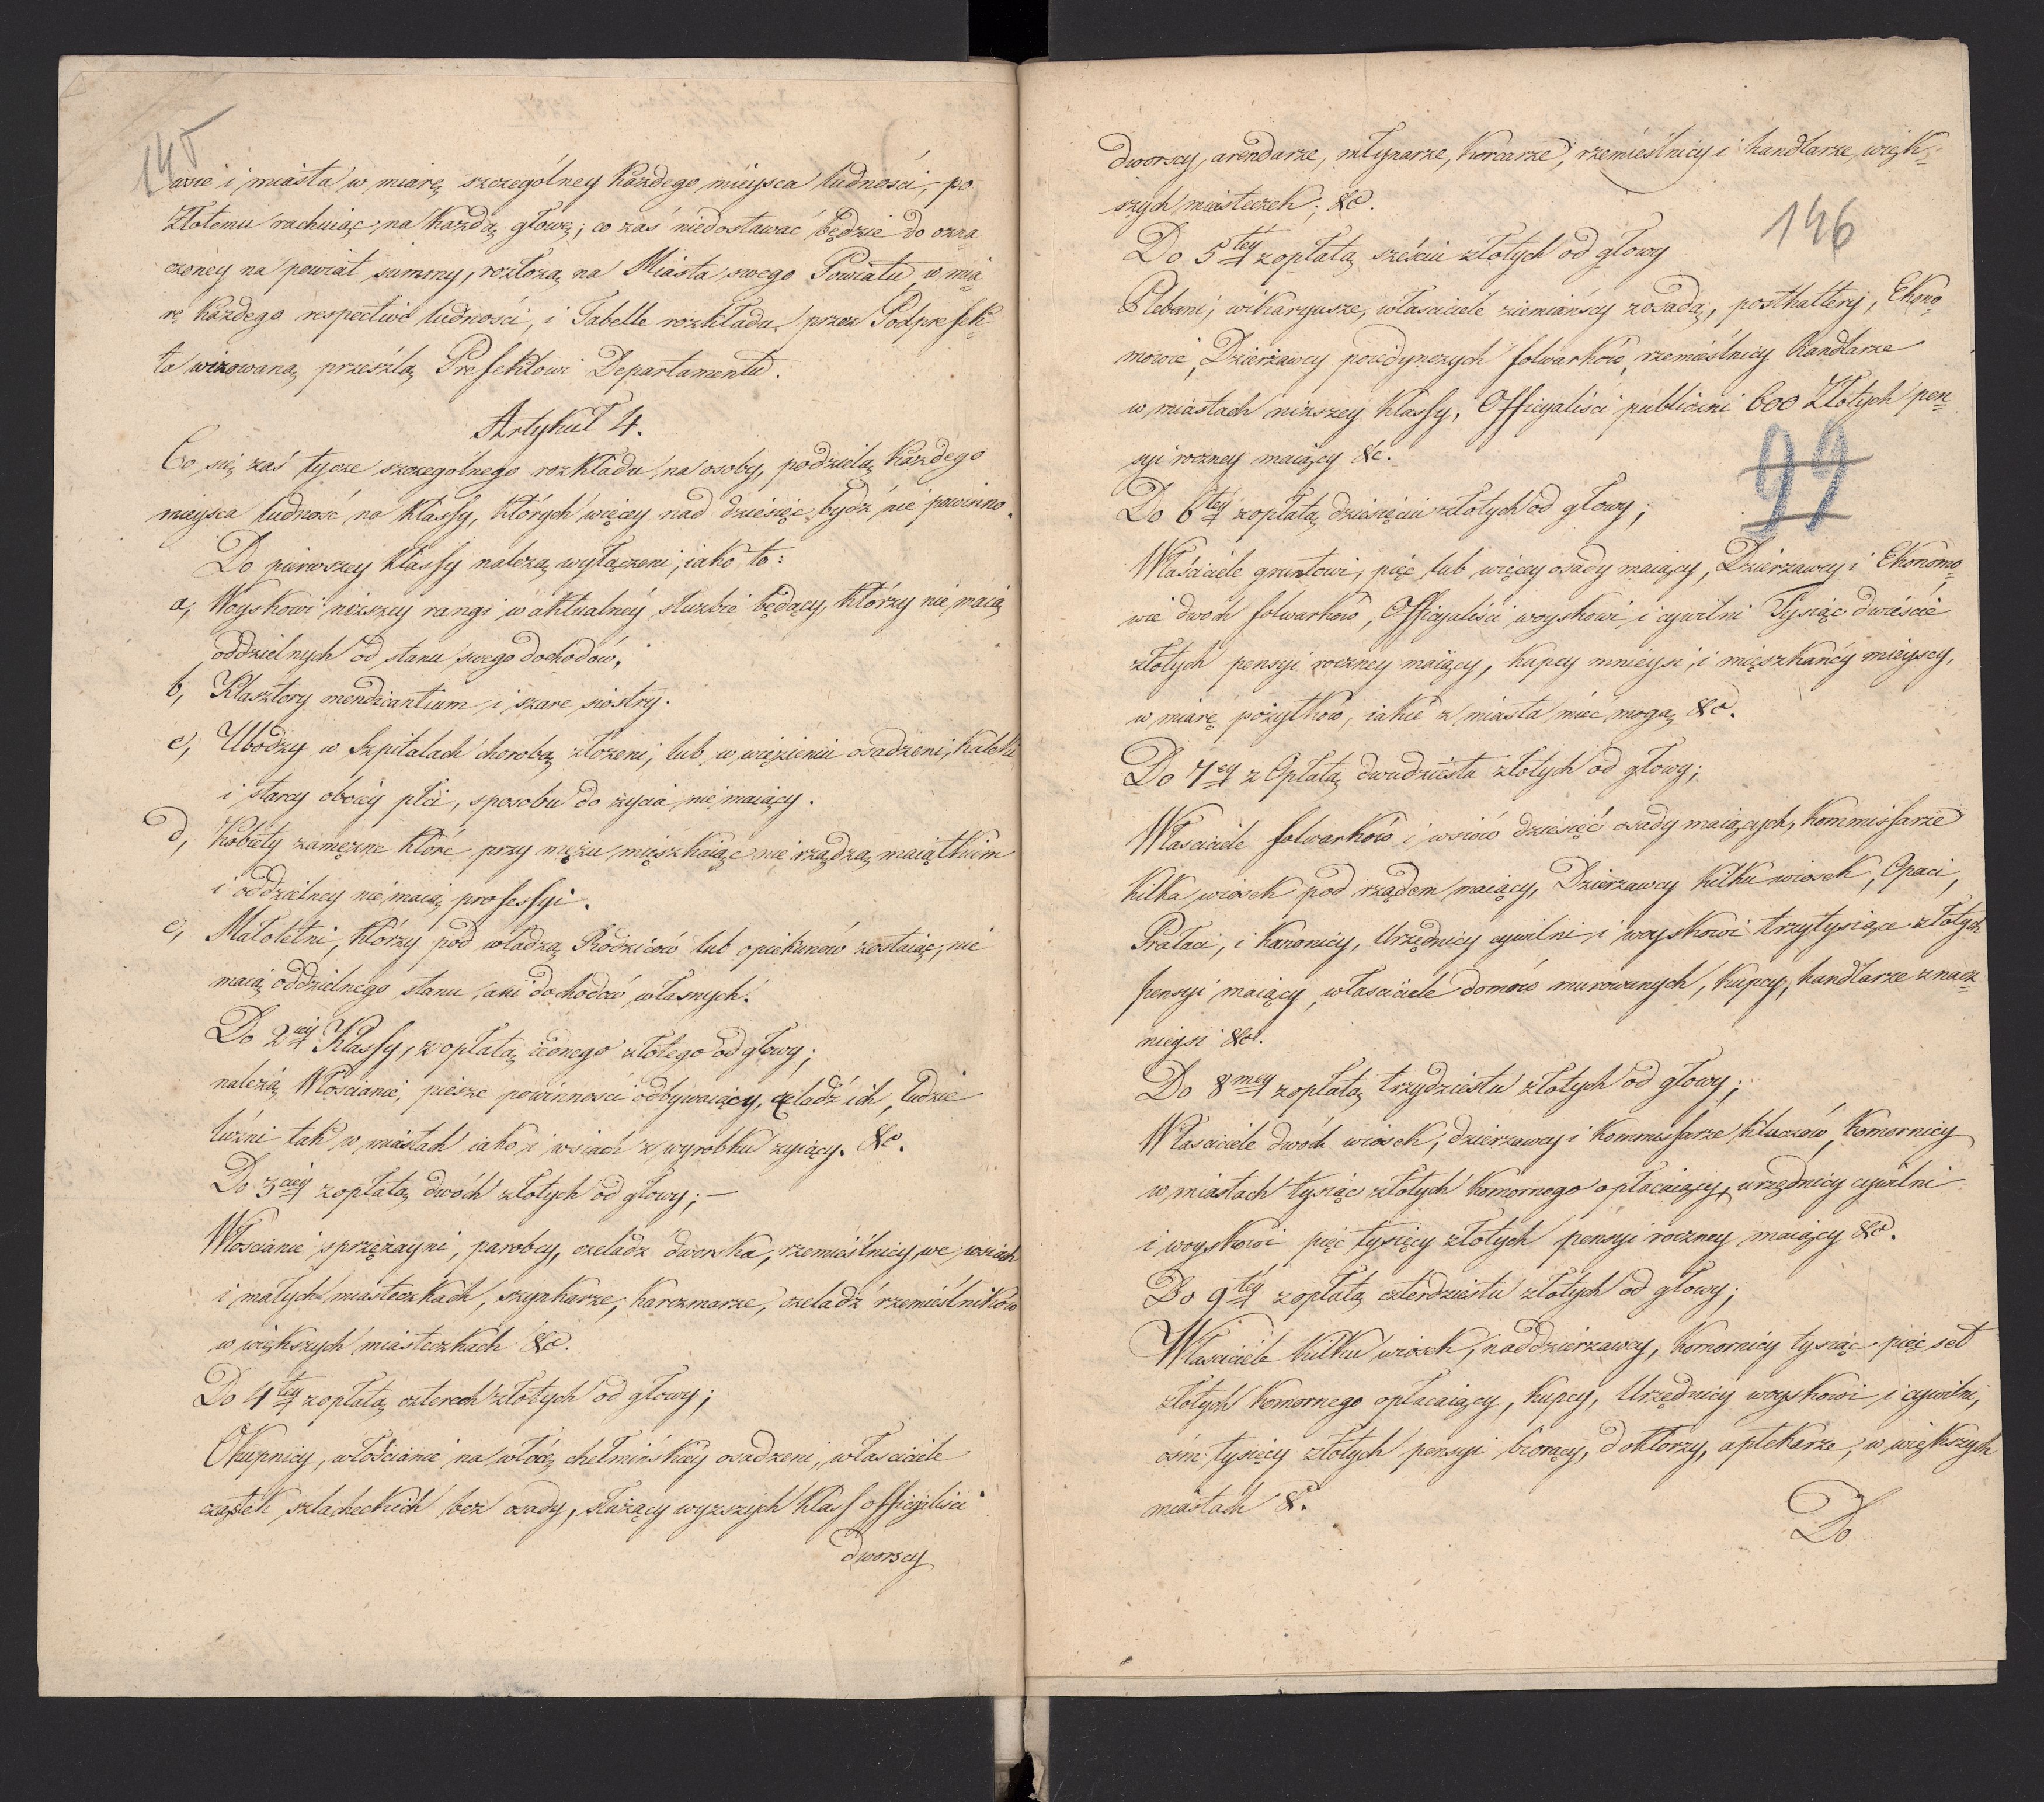 145
wsie i miasta w miarę szczególney każdego mieysca ludności, po
Złotemu rachuiąc na każdą głowę; co zaś niedostawać będzie do ozna=
czoney na powiat summy, rozłożą na Miasta swego Powiatu w mia=
rę każdego respective ludności, i Tabelle rozkładu przez Podprefek=
ta wizowaną przeszlą Prefektowi Departamentu.
Artykuł 4.
Co się zaś tycze szczególnego rozkładu na osoby, podzielą każdego
mieysca ludność na klassy, których więcey nad dziesięć bydź nie powinno.
Do pierwszey klassy należą wyłączeni, iako to:
a, Woyskowi niższey rangi w aktualney służbie będący, którzy nie maią
oddzielnych od stanu swego dochodów.
b, Klasztory mendicantium i szare siostry.
c, Ubodzy w Szpitalach chorobą złożeni, lub w więzieniu osadzeni, kaleki
i starcy oboiey płci, sposobu do życia nie maiący.
d, Kobiety zamężne które przy mężu mięszkaiąc nie rządzą maiątkiem
i oddzielney nie maią professyi.
e, Małoletni, którzy pod władzą Rodziców lub opiekunów zostaiąc, nie
maią oddzielnego stanu, ani dochodów własnych.
Do 2giey Klassy, z opłatą iednego złotego od głowy;
należą Włościanie, piesze powinności odbywaiący, czeladź ich, ludzie
luźni tak w miastach iako i wsiach z wyrobku żyiący. &c.
Do 3ciey z opłatą dwóch złotych od głowy; —
Włościanie sprzężayni, parobcy, czeladź dworska, rzemieślnicy we wsiach
i małych miasteczkach, szynkarze, karczmarze, czeladź rzemieślników
w większych miasteczkach &c.
Do 4tey z opłatą czterech złotych od głowy;
Okupnicy, włościanie na włócę chełmińskiey osadzeni, właściciele
cząstek szlacheckich bez osady, służący wyższych klass officyaliści
dworscy
dworscy, arendarze, młynarze, korcarze, rzemieślnicy i handlarze więk=
szych miasteczek; &c.
146
Do 5tey z opłatą sześciu złotych od głowy
Plebani, wikaryusze, właściciele ziemiańscy z osadą, poszthaltery, Ekono=
mowie, Dzierżawcy poiedynczych folwarków, rzemieślnicy handlarze
w miastach niższey klassy, Officyaliści publiczni 600 Złotych pen=
syi roczney maiący &c.
99
Do 6tey z opłatą dziesięciu złotych od głowy;
Właściciele gruntowi, pięć lub więcey osady maiący, Dzierżawcy i Ekonomo=
wie dwóch folwarków, Officyaliści woyskowi i cywilni Tysiąc dwieście
złotych pensyi roczney maiący, kupcy mnieysi, i mięszkańcy mieyscy,
w miarę pożytków, iakie z miasta mieć mogą &c.
Do 7ey z Opłatą dwudziestu złotych od głowy;
Właściciele folwarków i wsiów dziesięć osady maiących, kommissarze
kilka wiosek pod rządem maiący, Dzierżawcy kilku wiosek, Opaci,
Prałaci, i kanonicy, Urzędnicy cywilni i woyskowi trzy tysiące złotych
pensyi maiący, właściciele domów murowanych, kupcy, handlarze znacz=
nieysi &c.
Do 8mey z opłatą trzydziestu złotych od głowy;
Właściciele dwóch wiosek, dzierżawcy i kommissarze kluczów, komornicy
w miastach tysiąc złotych komornego opłacaiący, urzędnicy cywilni
i woyskowi pięć tysięcy złotych pensyi roczney maiący &c.
Do 9tey z opłatą czterdziestu złotych od głowy;
Właściciele kilku wiosek, naddzierżawcy, komornicy tysiąc pięć set
złotych komornego opłacaiący, kupcy, Urzędnicy woyskowi i cywilni,
ośm tysięcy złotych pensyi biorący, doktorzy, aptekarze, w większych
miastach &.
Do